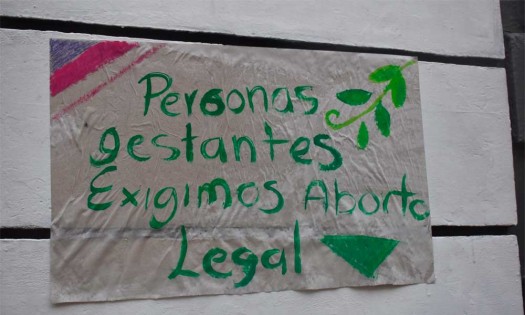 Personas
gestantes
Exigimos Aborto
Legal